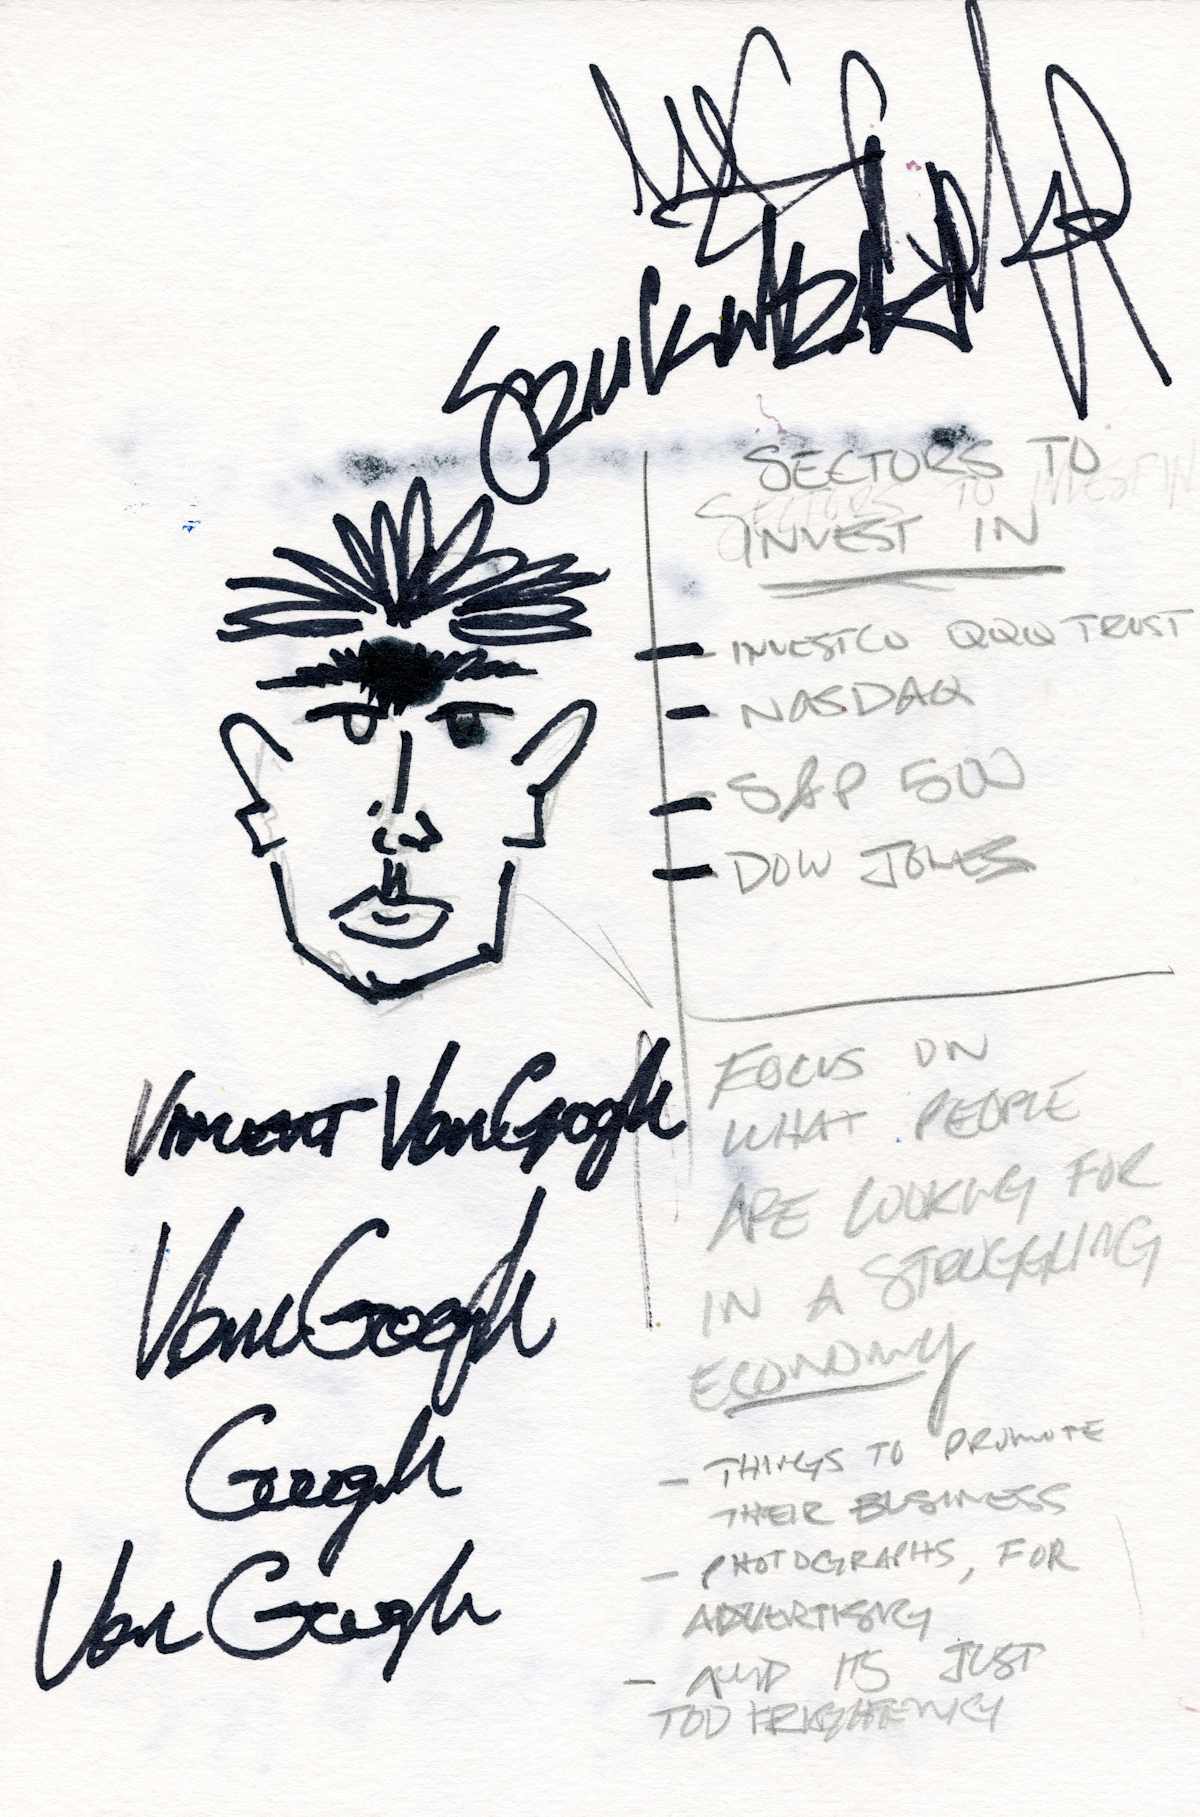 SECTORS TO
SECTORS TO INVEST IN
INVEST IN
- INVESTCO QQQ TRUST
- NASDAQ
- S&P 500
- DOW JONES
FOCUS ON
WHAT PEOPLE
ARE LOOKING FOR
IN A STRUGGLING
ECONOMY
- THINGS TO PROMOTE
THEIR BUSINESS
- PHOTOGRAPHS, FOR
ADVERTISING
- AND ITS JUST
TOO FRIGHTENING
Vincent Van Googh
Van Googh
Googh
Van Googh